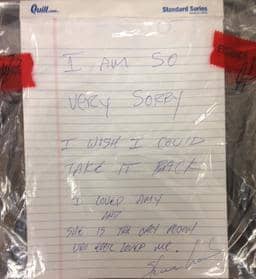 Quill.com
Standard Series
I AM SO
VERY SORRY
I WISH I COULD
TAKE IT BACK
I LOVED AMY
AND
SHE IS THE ONLY PERSON
WHO EVER LOVED ME.